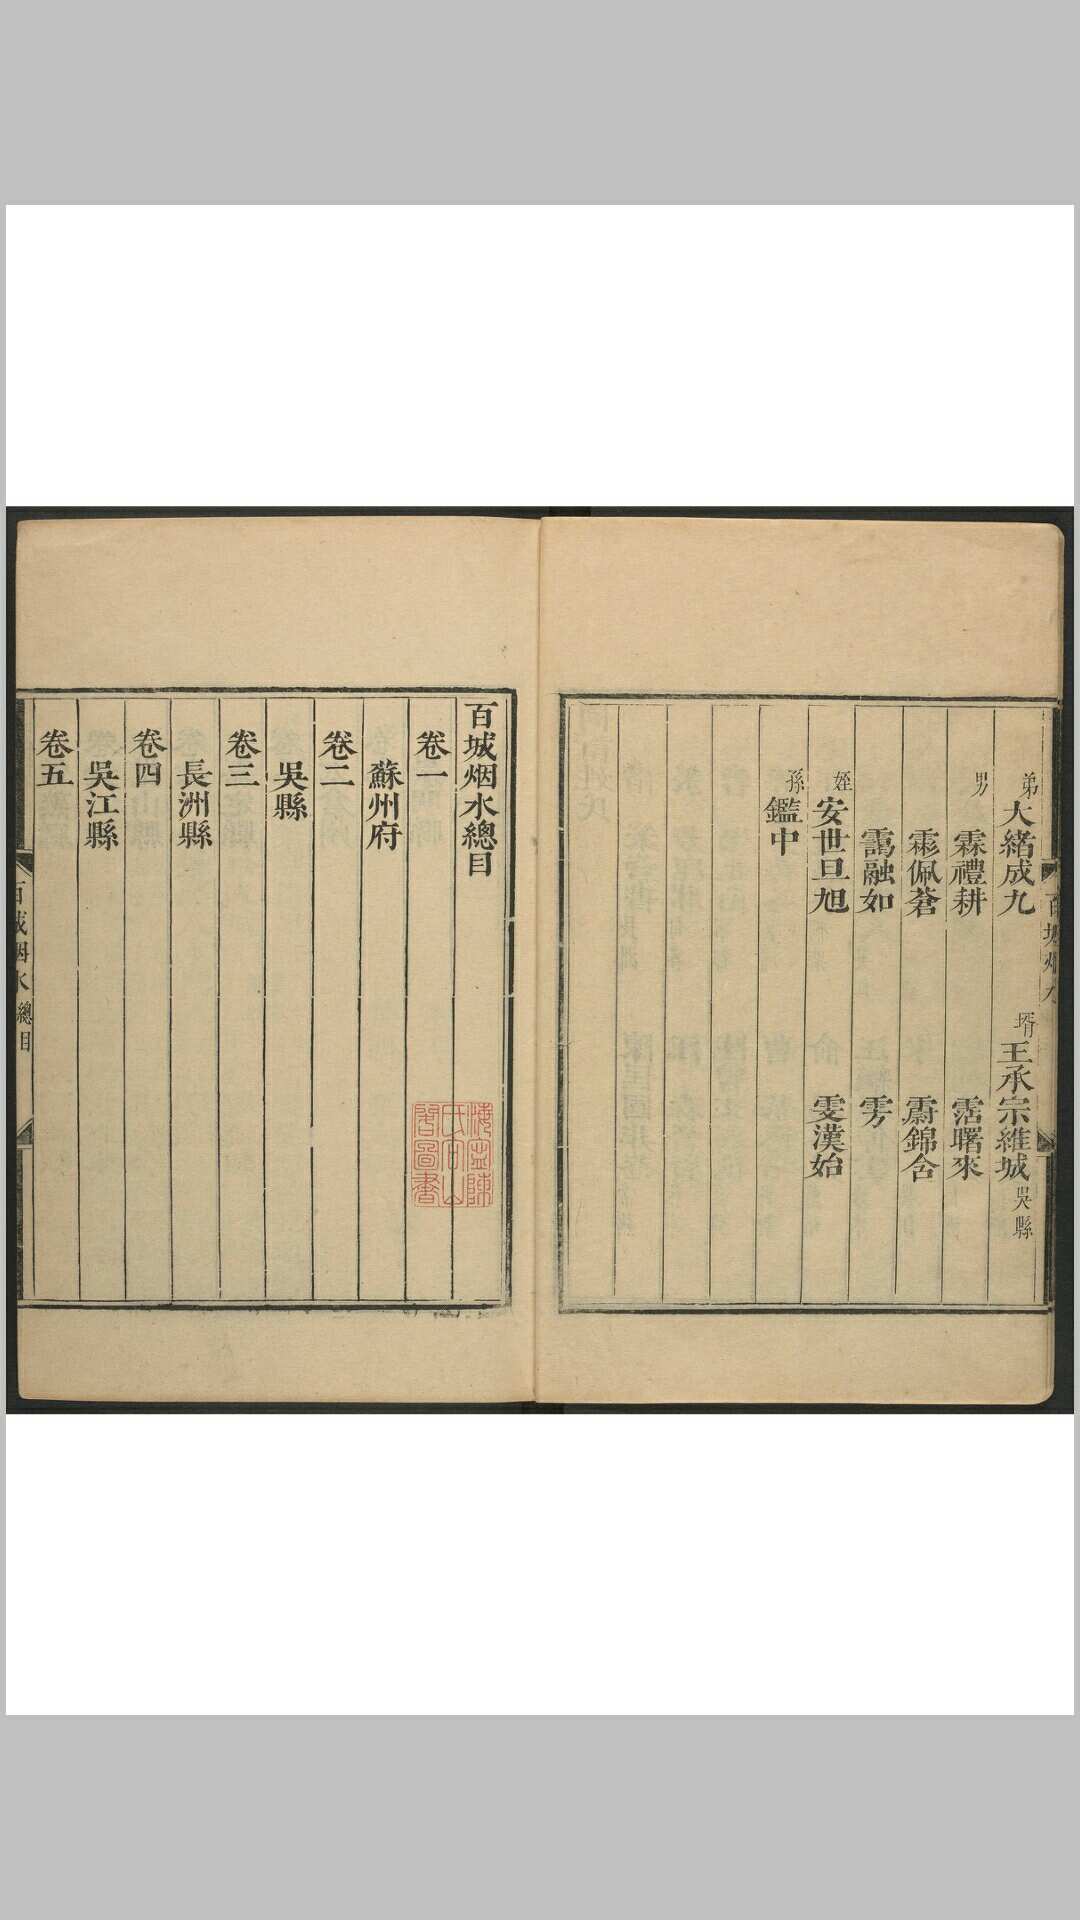 弟大緒成九 壻王承宗維城吳縣
男霖禮耕 霑曙來
霦佩蒼 霨錦含
靄融如 雱
姪安世旦旭 雯漢始
孫鑑中
百城烟水總目
卷一
蘇州府
卷二
吳縣
卷三
長洲縣
卷四
吳江縣
卷五
百城烟水 總目
海寧陳
氏向山
閣圖書